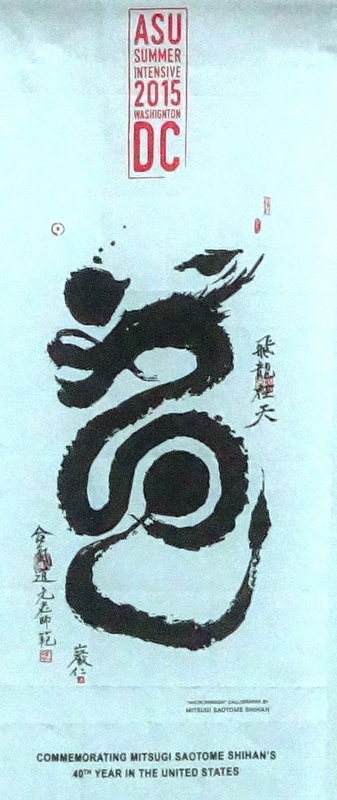 ASU
SUMMER
INTENSIVE
2015
WASHIGNTON
DC
飛龍在天
合氣道元老師範
巖仁
CALLIGRAPHY BY
MITSUGI SAOTOME SHIHAN
COMMEMORATING MITSUGI SAOTOME SHIHAN'S
40TH YEAR IN THE UNITED STATES